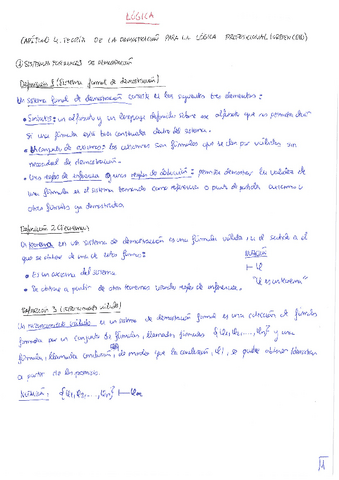 LÓGICA
CAPÍTULO 4. TEORÍA DE LA DEMOSTRACIÓN PARA LA LÓGICA PROPOSICIONAL
① SISTEMAS FORMALES DE DEMOSTRACIÓN
Definición 1 (Sistema formal de demostración)
Un sistema formal de demostración consta de los siguientes tres elementos:
• Sintaxis: un alfabeto y un lenguaje definido sobre ese alfabeto que nos permita decir
si una fórmula está bien construida dentro del sistema.
• Un conjunto de axiomas: los axiomas son fórmulas que se dan por válidas sin
necesidad de demostración.
• Unas reglas de inferencia o reglas de deducción: permiten demostrar la validez de
una fórmula en el sistema tomando como referencia o punto de partida axiomas u
otras fórmulas ya demostradas.
Definición 2 (Teorema)
Un teorema en un sistema de demostración es una fórmula válida
que se obtiene de una de estas formas:
NOTACIÓN
⊢ φ
• Es un axioma del sistema.
"φ es un teorema"
• Se obtiene a partir de otros teoremas usando reglas de inferencia.
Definición 3 (razonamiento válido)
Un razonamiento válido en un sistema de demostración formal es una colección de fórmulas
formada por un conjunto de fórmulas, llamadas premisas {φ1, φ2, ..., φn} y una
fórmula, llamada conclusión, de modo que la conclusión, φ, se puede obtener
a partir de las premisas.
NOTACIÓN: {φ1, φ2, ..., φn} ⊢